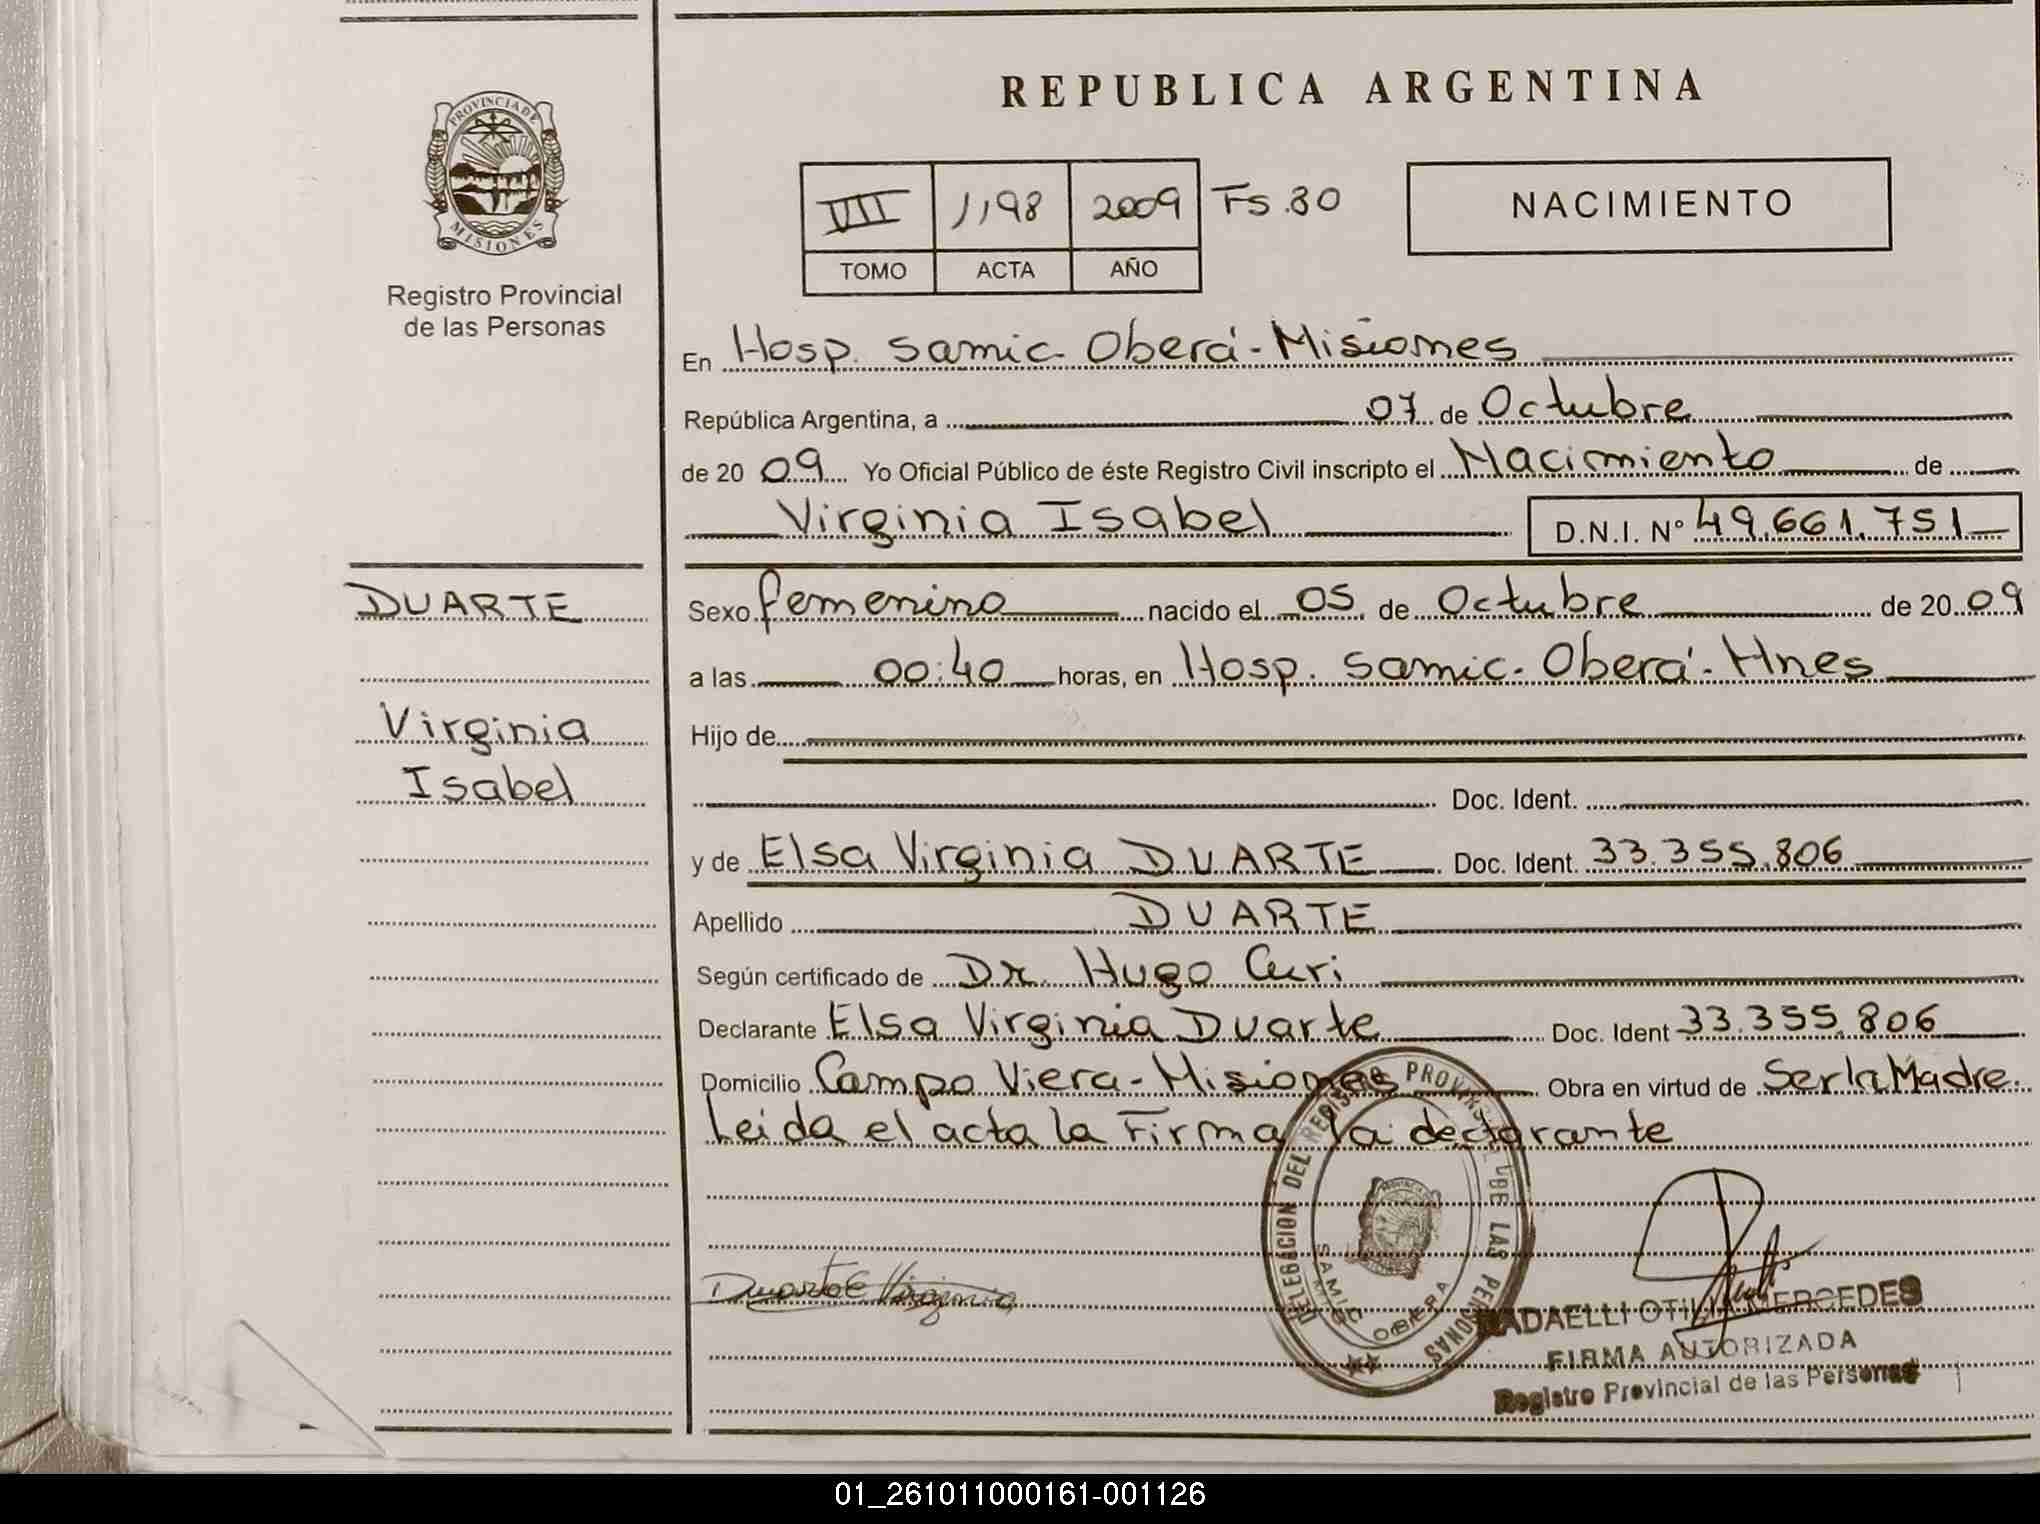 REPUBLICA ARGENTINA
PROVINCIA DE MISIONES
Registro Provincial
de las Personas
VIII 1198 2009 Fs. 80
TOMO ACTA AÑO
NACIMIENTO
En Hosp. Samic. Oberá - Misiones
República Argentina, a 07 de Octubre
de 2009 Yo Oficial Público de éste Registro Civil inscripto el Nacimiento de
Virginia Isabel D.N.I. Nº 49.661.751
DUARTE
Virginia
Isabel
Sexo femenino nacido el 05 de Octubre de 2009
a las 00:40 horas, en Hosp. Samic. Oberá - Mnes
Hijo de
Doc. Ident.
y de Elsa Virginia DUARTE Doc. Ident. 33.355.806
Apellido DUARTE
Según certificado de Dr. Hugo Curi
Declarante Elsa Virginia Duarte Doc. Ident 33.355.806
Domicilio Campo Viera - Misiones Obra en virtud de Ser la Madre.
Leida el acta la Firma la declarante
DELEGACION DEL REGISTRO PROVINCIAL DE LAS PERSONAS
SAMIC OBERA
Duarte E Virginia
RADAELLI OTILIA MERCEDES
FIRMA AUTORIZADA
Registro Provincial de las Personas
01_261011000161-001126